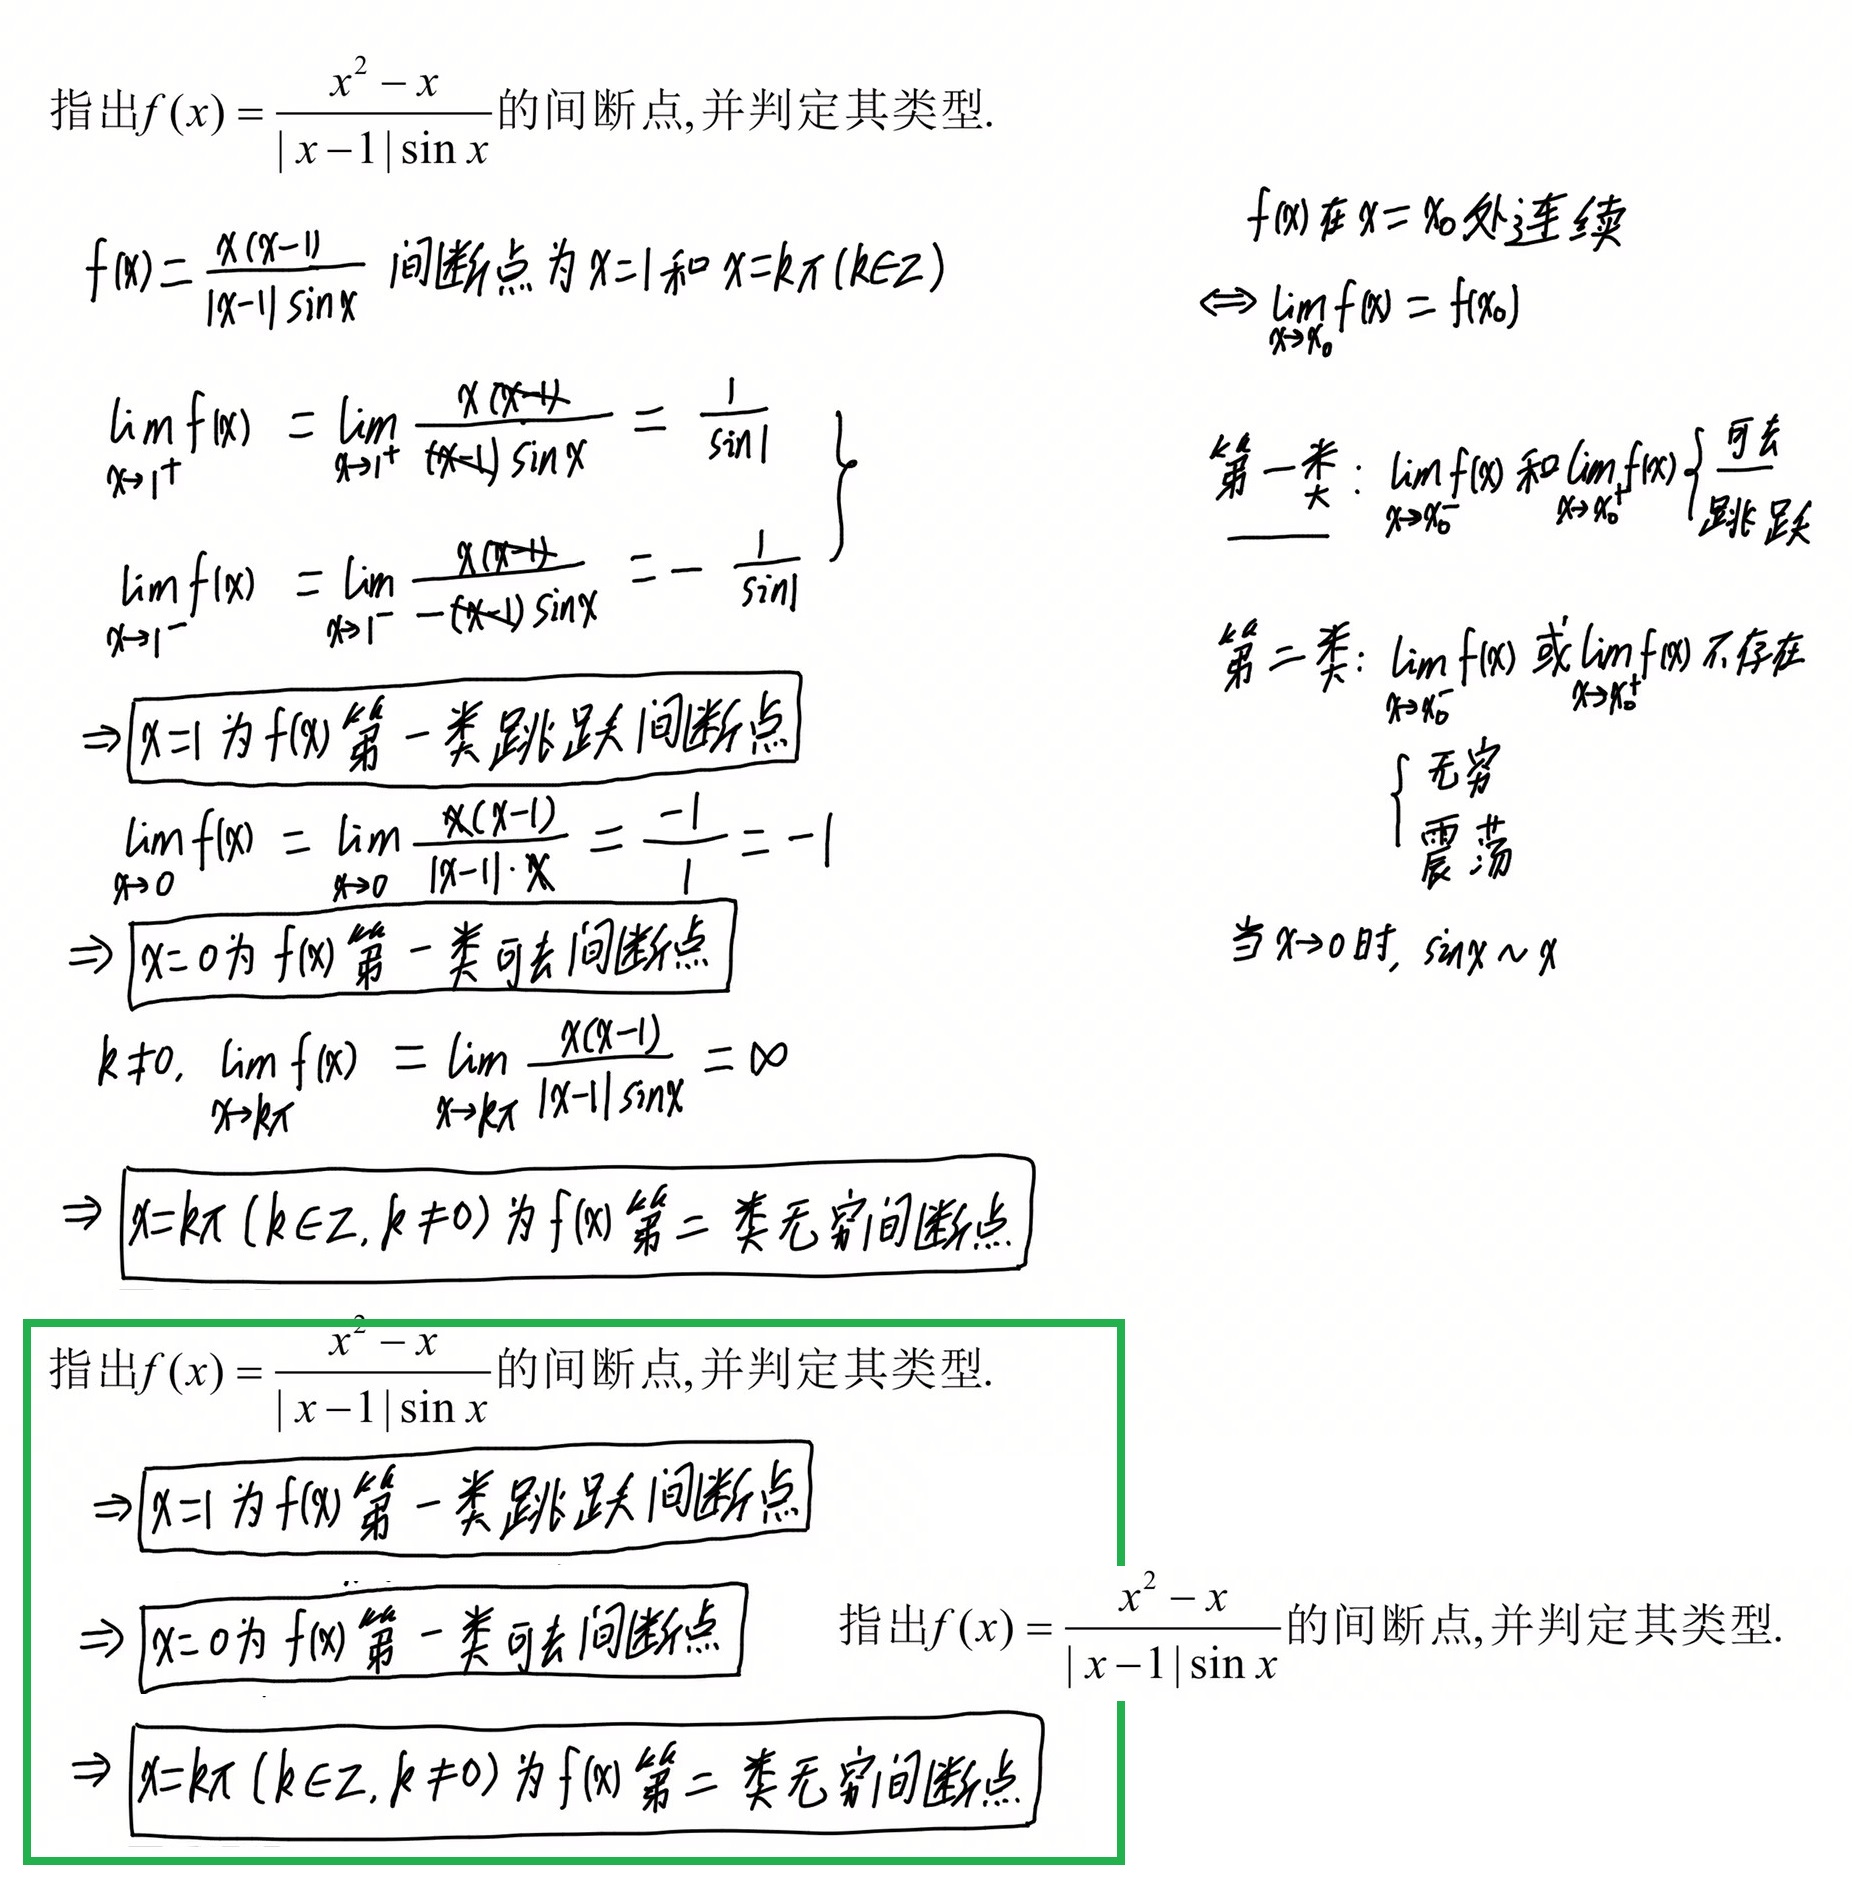 指出f(x)=\frac{x^2-x}{|x-1|\sin x}的间断点,并判定其类型.
f(x)=\frac{x(x-1)}{|x-1|\sin x} 间断点为x=1和x=kπ(k∈Z)
\lim_{x→1^+}f(x)=\lim_{x→1^+}\frac{x(x-1)}{(x-1)\sin x}=\frac{1}{\sin 1}
\lim_{x→1^-}f(x)=\lim_{x→1^-}\frac{x(x-1)}{-(x-1)\sin x}=-\frac{1}{\sin 1}
⇒x=1为f(x)第一类跳跃间断点
\lim_{x→0}f(x)=\lim_{x→0}\frac{x(x-1)}{|x-1|·x}=\frac{-1}{1}=-1
⇒x=0为f(x)第一类可去间断点
k≠0, \lim_{x→kπ}f(x)=\lim_{x→kπ}\frac{x(x-1)}{|x-1|\sin x}=∞
⇒x=kπ(k∈Z,k≠0)为f(x)第二类无穷间断点
f(x)在x=x_0处连续
⇔\lim_{x→x_0}f(x)=f(x_0)
第一类:\lim_{x→x_0^-}f(x)和\lim_{x→x_0^+}f(x){可去
跳跃
第二类:\lim_{x→x_0^-}f(x)或\lim_{x→x_0^+}f(x)不存在
{无穷
震荡
当x→0时, sinx~x
指出f(x)=\frac{x^2-x}{|x-1|\sin x}的间断点,并判定其类型.
⇒x=1为f(x)第一类跳跃间断点
⇒x=0为f(x)第一类可去间断点
指出f(x)=\frac{x^2-x}{|x-1|\sin x}的间断点,并判定其类型.
⇒x=kπ(k∈Z,k≠0)为f(x)第二类无穷间断点